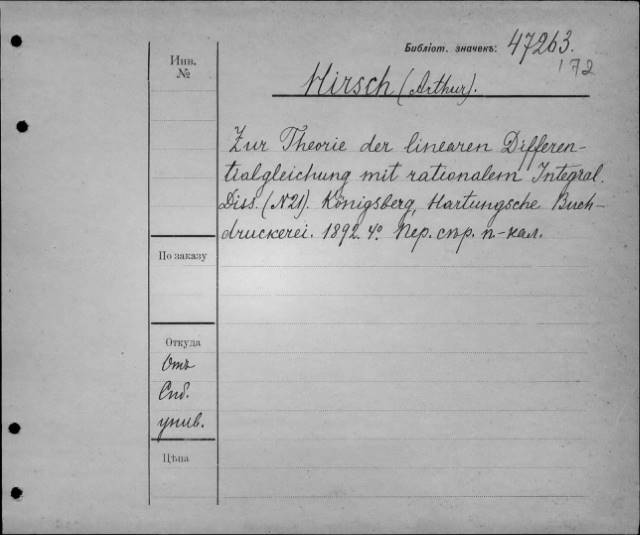 Библіот. значекъ: 47263.
172
Инв.
№
Hirsch (Arthur).
Zur Theorie der linearen Differen-
tialgleichung mit rationalem Integral.
Diss. (N21). Königsberg, Hartungsche Buch-
druckerei. 1892. 4º. Пер. стр. п-кал.
По заказу
Откуда
Отъ
Спб.
унив.
Цѣна